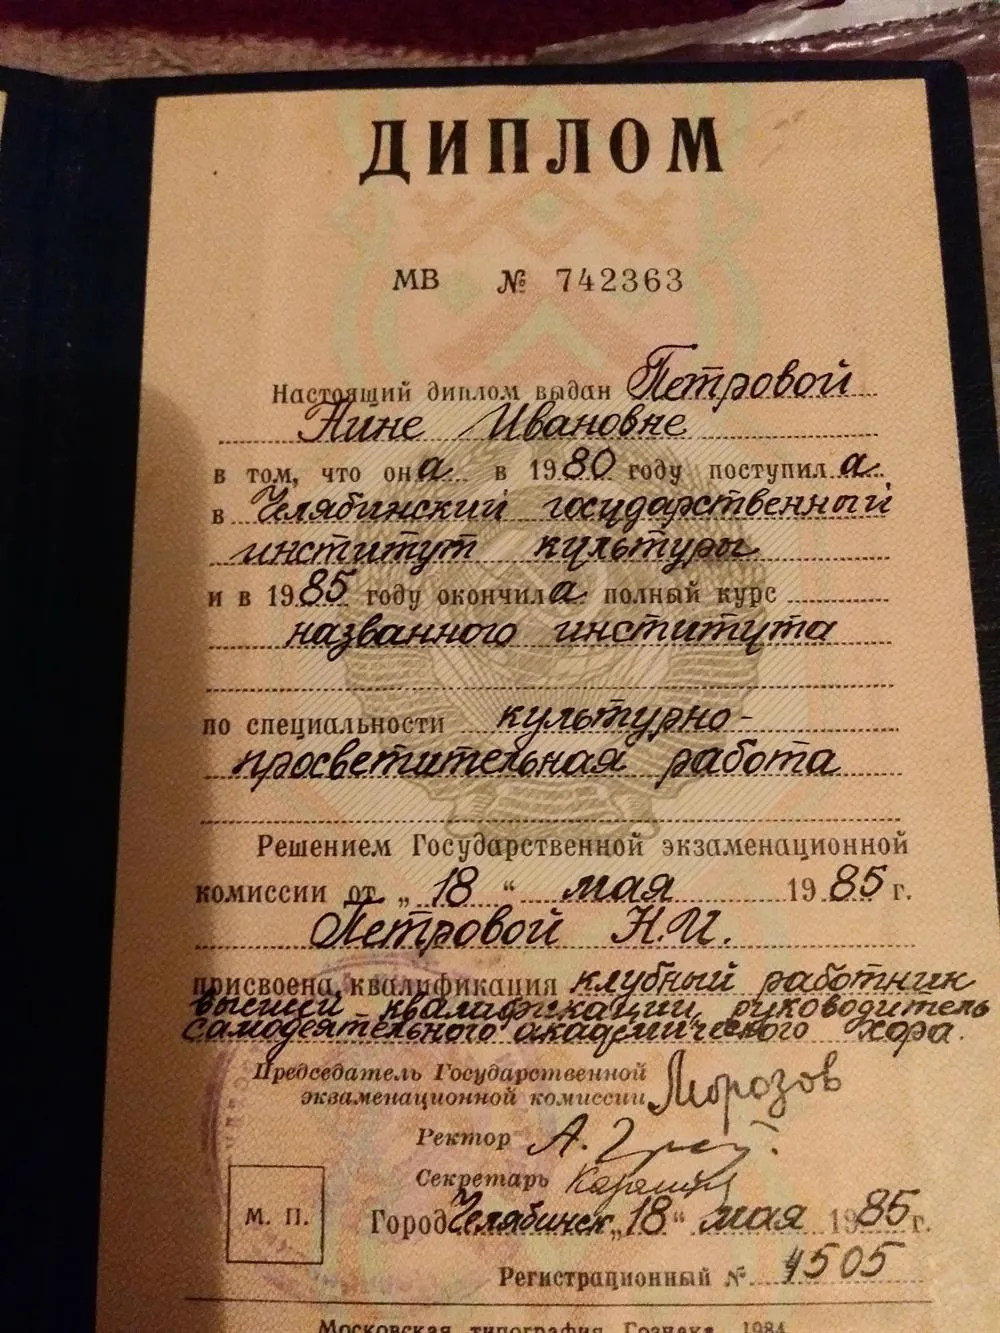 ДИПЛОМ
МВ № 742363
Настоящий диплом выдан Петровой
Нине Ивановне
в том, что она в 1980 году поступила
в Челябинский государственный
институт культуры
и в 1985 году окончила полный курс
названного института
по специальности культурно-
просветительная работа
Решением Государственной экзаменационной
комиссии от „18“ мая 1985 г.
Петровой Н.И.
присвоена квалификация клубный работник
высшей квалификации, руководитель
самодеятельного академического хора.
Председатель Государственной
экзаменационной комиссии Морозов
Ректор А.
Секретарь
М. П.
Город Челябинск „18“ мая 1985 г.
Регистрационный № 4505
Московская типография Гознака. 1984.